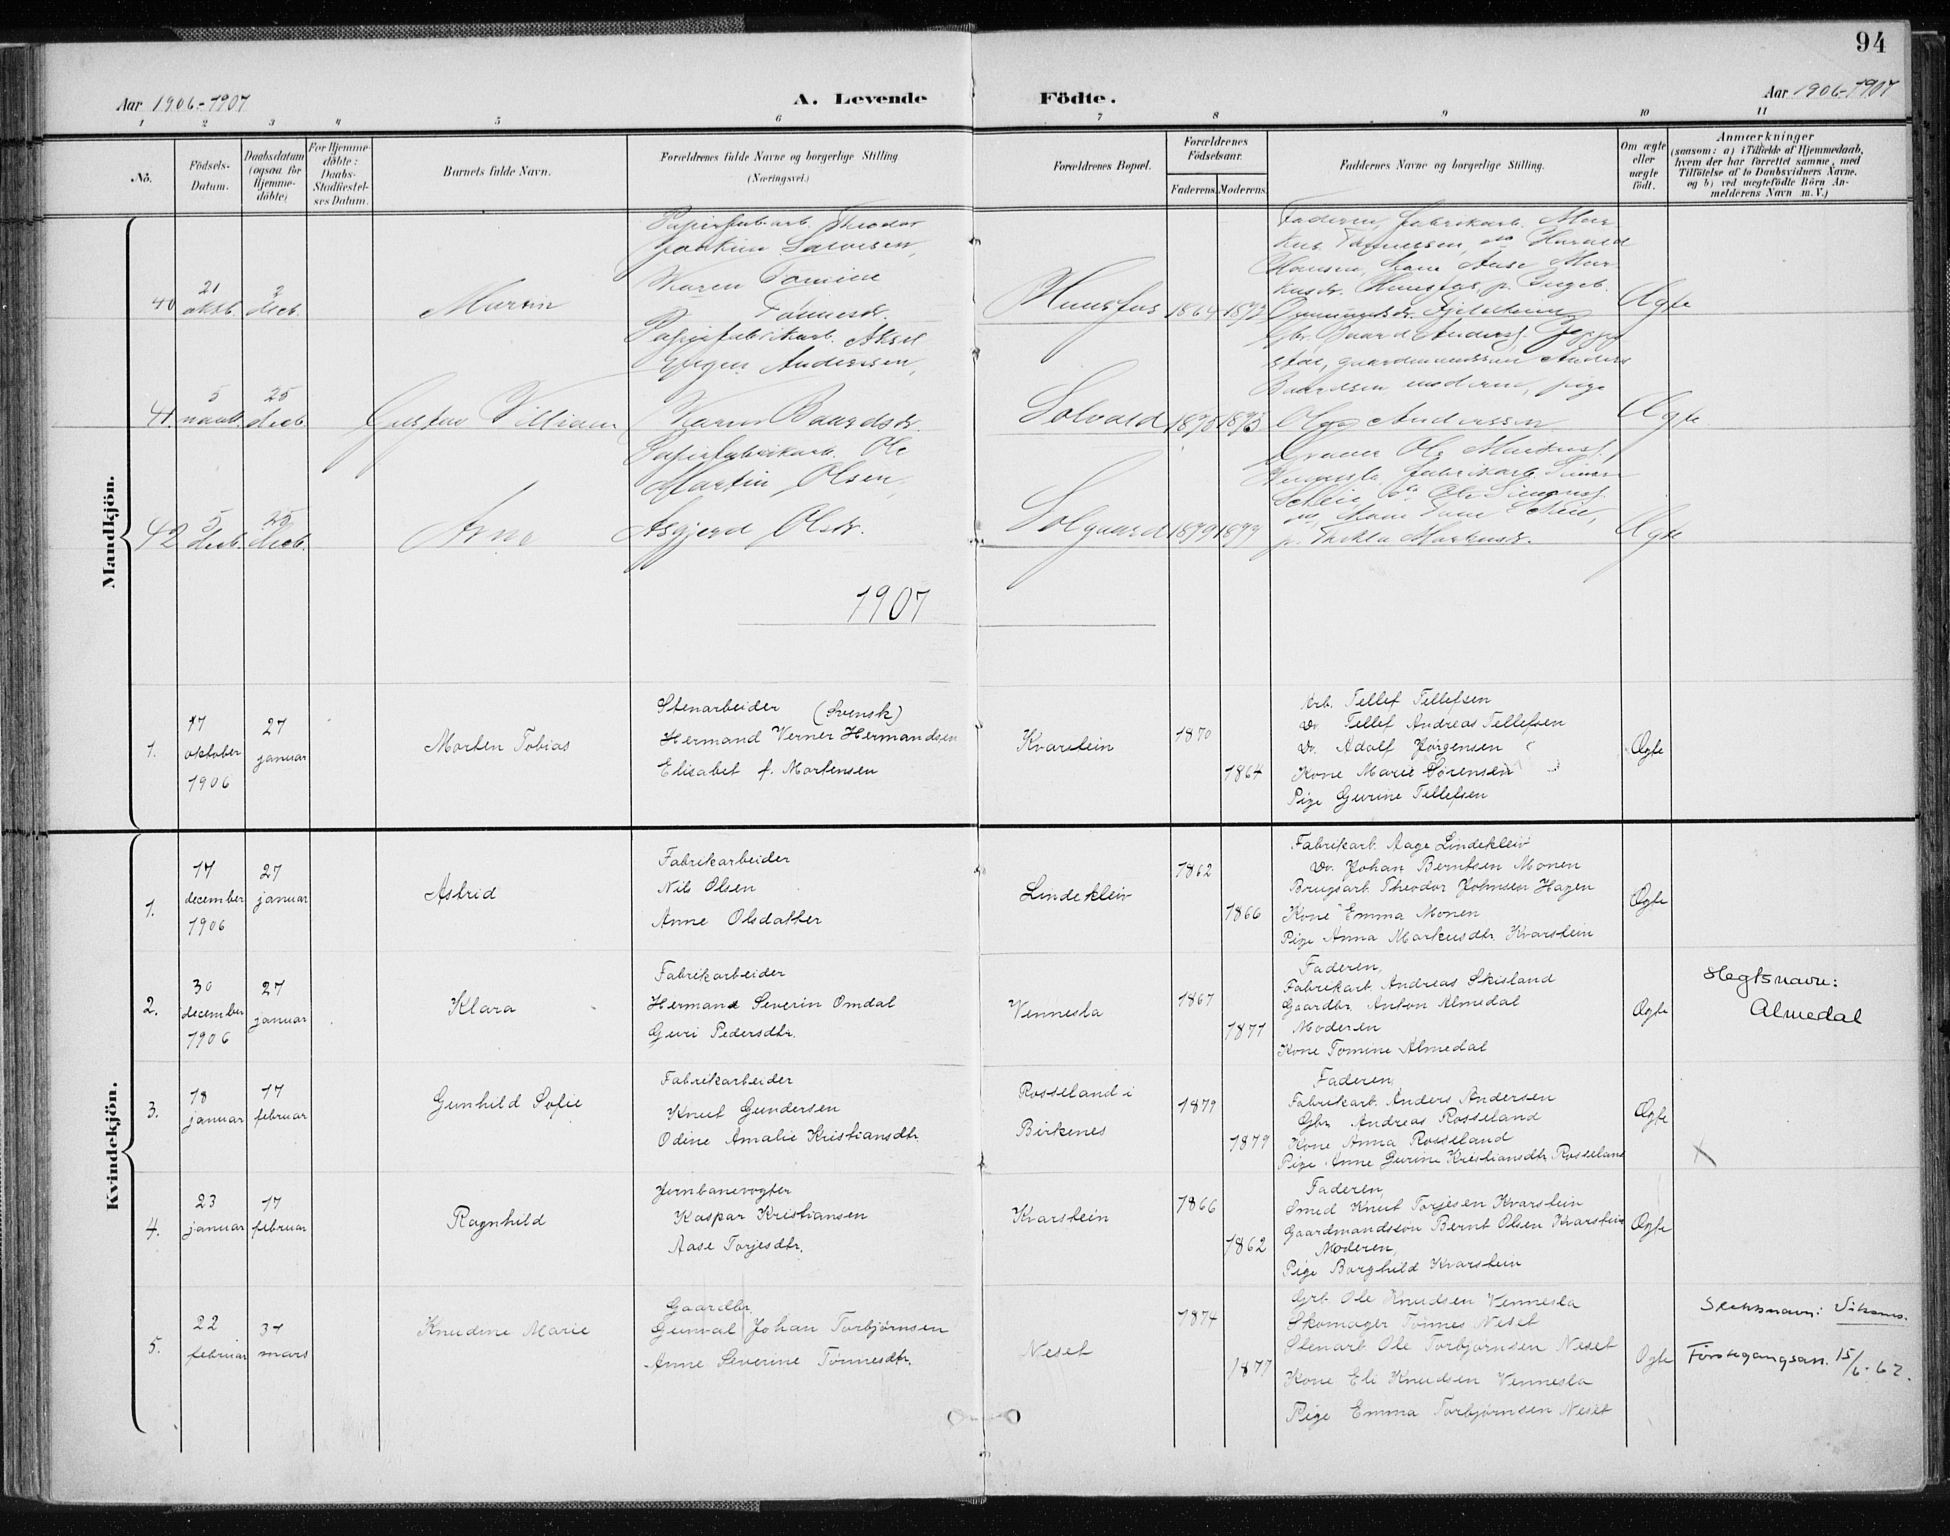 94
Aar 1906-1907
A. Levende Födte.
Aar 1906-1907
1 2 3 4 5 6 7 8 9 10 11
No.
Födsels-
Datum.
Daabsdatum
(ogsaa for
Hjemme-
döbte)
For Hjemme-
döbte:
Daabs-
Stadfæstel-
ses Datum.
Barnets fulde Navn.
Forældrenes fulde Navne og borgerlige Stilling
(Næringsvei.)
Forældrenes Bopæl.
Forældrenes
Födselsaar.
Faderens. Moderens.
Faddernes Navne og borgerlige Stilling.
Om ægte
eller
uægte
født.
Anmærkninger
(saasom: a) i Tilfælde af Hjemmedaab,
hvem der har forrettet samme, med
Tilföielse af to Daabsvidners Navne.
og b) ved uægtefödte Börn An-
melderens Navn m. V.)
Mandkjön.
40
21
oktb.
2
decb.
Martin
Papirfabarb. Theodor
Joakim Salvesen,
Karen Tomine
Tönnesdr.
Hunsfos
1864
Faderen, fabrikarb. Mar-
kus
Hansen,
Ægte
41.
5
novb.
25
decb.
Gustav Villiam
Papirfabrikarb. Aksel
Jørgen Andersen,
Karen Baardsdr.
Solvold
1878
Baardsen moderen, pige
Olga Anderssen
Ægte.
42
5
decb.
25
decb.
Arne
Papirfabrikarb. Ole
Martin Olsen,
Asgjerd Olsdr.
Solgaard
1879
p. Thekla Markusdr.
Ægte
1907
1.
17
oktober
1906
27
januar
Morten Tobias
Stenarbeider (Svensk)
Hermand Verner Hermandsen
Elisabet f. Mortensen
Kvarstein
1870
1864
Arb. Tellef Tellefsen
Do. Tellef Andreas Tellefsen
Do. Adolf Jørgensen
Kone Marie Sørensen
Pige Gurine Tellefsen
Ægte
Kvindekjön.
1.
17
december
1906
27
januar
Astrid
Fabrikarbeider
Nils Olsen
Anne Olsdatter
Lindekleiv
1862
1866
Fabrikarb. Aage Lindekleiv
Do. Johan Berntsen Monen
Brugsarb. Theodor Johnsen Hagen
Kone Emma Monen
Pige Anna Markusdtr. Kvarstein
Ægte
2.
30
december
1906
27
januar
Klara
Fabrikarbeider
Hermand Severin Omdal
Guri Pedersdtr.
Vennesla
1867
1871
Faderen,
Fabrikarb. Andreas Skisland
Gaardbr. Anton Almedal
Moderen
Kone Tomine Almedal
Ægte
Slegtsnavn:
Almedal
3.
18
januar
17
februar
Gunhild Sofie
Fabrikarbeider
Knut Gundersen
Odine Amalie Kristiansdtr.
Rosseland i
Birkenes
1879
1879
Faderen,
Fabrikarb. Anders Andersen
Gbr. Andreas Rosseland
Kone Anna Rosseland
Pige Anne Gurine Kristiansdtr. Rosseland
Ægte
X
4.
23
januar
17
februar
Ragnhild
Jernbanevogter
Kaspar Kristiansen
Aase Torjesdtr.
Kvarstein
1866
1862
Faderen,
Smed Knut Torjesen Kvarstein
Gaardmandssøn Bernt Olsen Kvarstein
Moderen,
Pige Borghild Kvarstein
Ægte
5.
22
februar
31
mars
Knudine Marie
Gaardbr.
Gunval Johan Torbjørnsen
Anne Severine Tønnesdtr.
Neset
1874
1877
Grb. Ole Knudsen Vennesla
Skomager Tønnes Neset
Stenarb. Ole Torbjørnsen Neset
Kone Eli Knudsen Vennesla
Pige Emma Torbjørnsen Neset
Ægte
Slektsnavn:
Förstegangsan. 15/6-62.